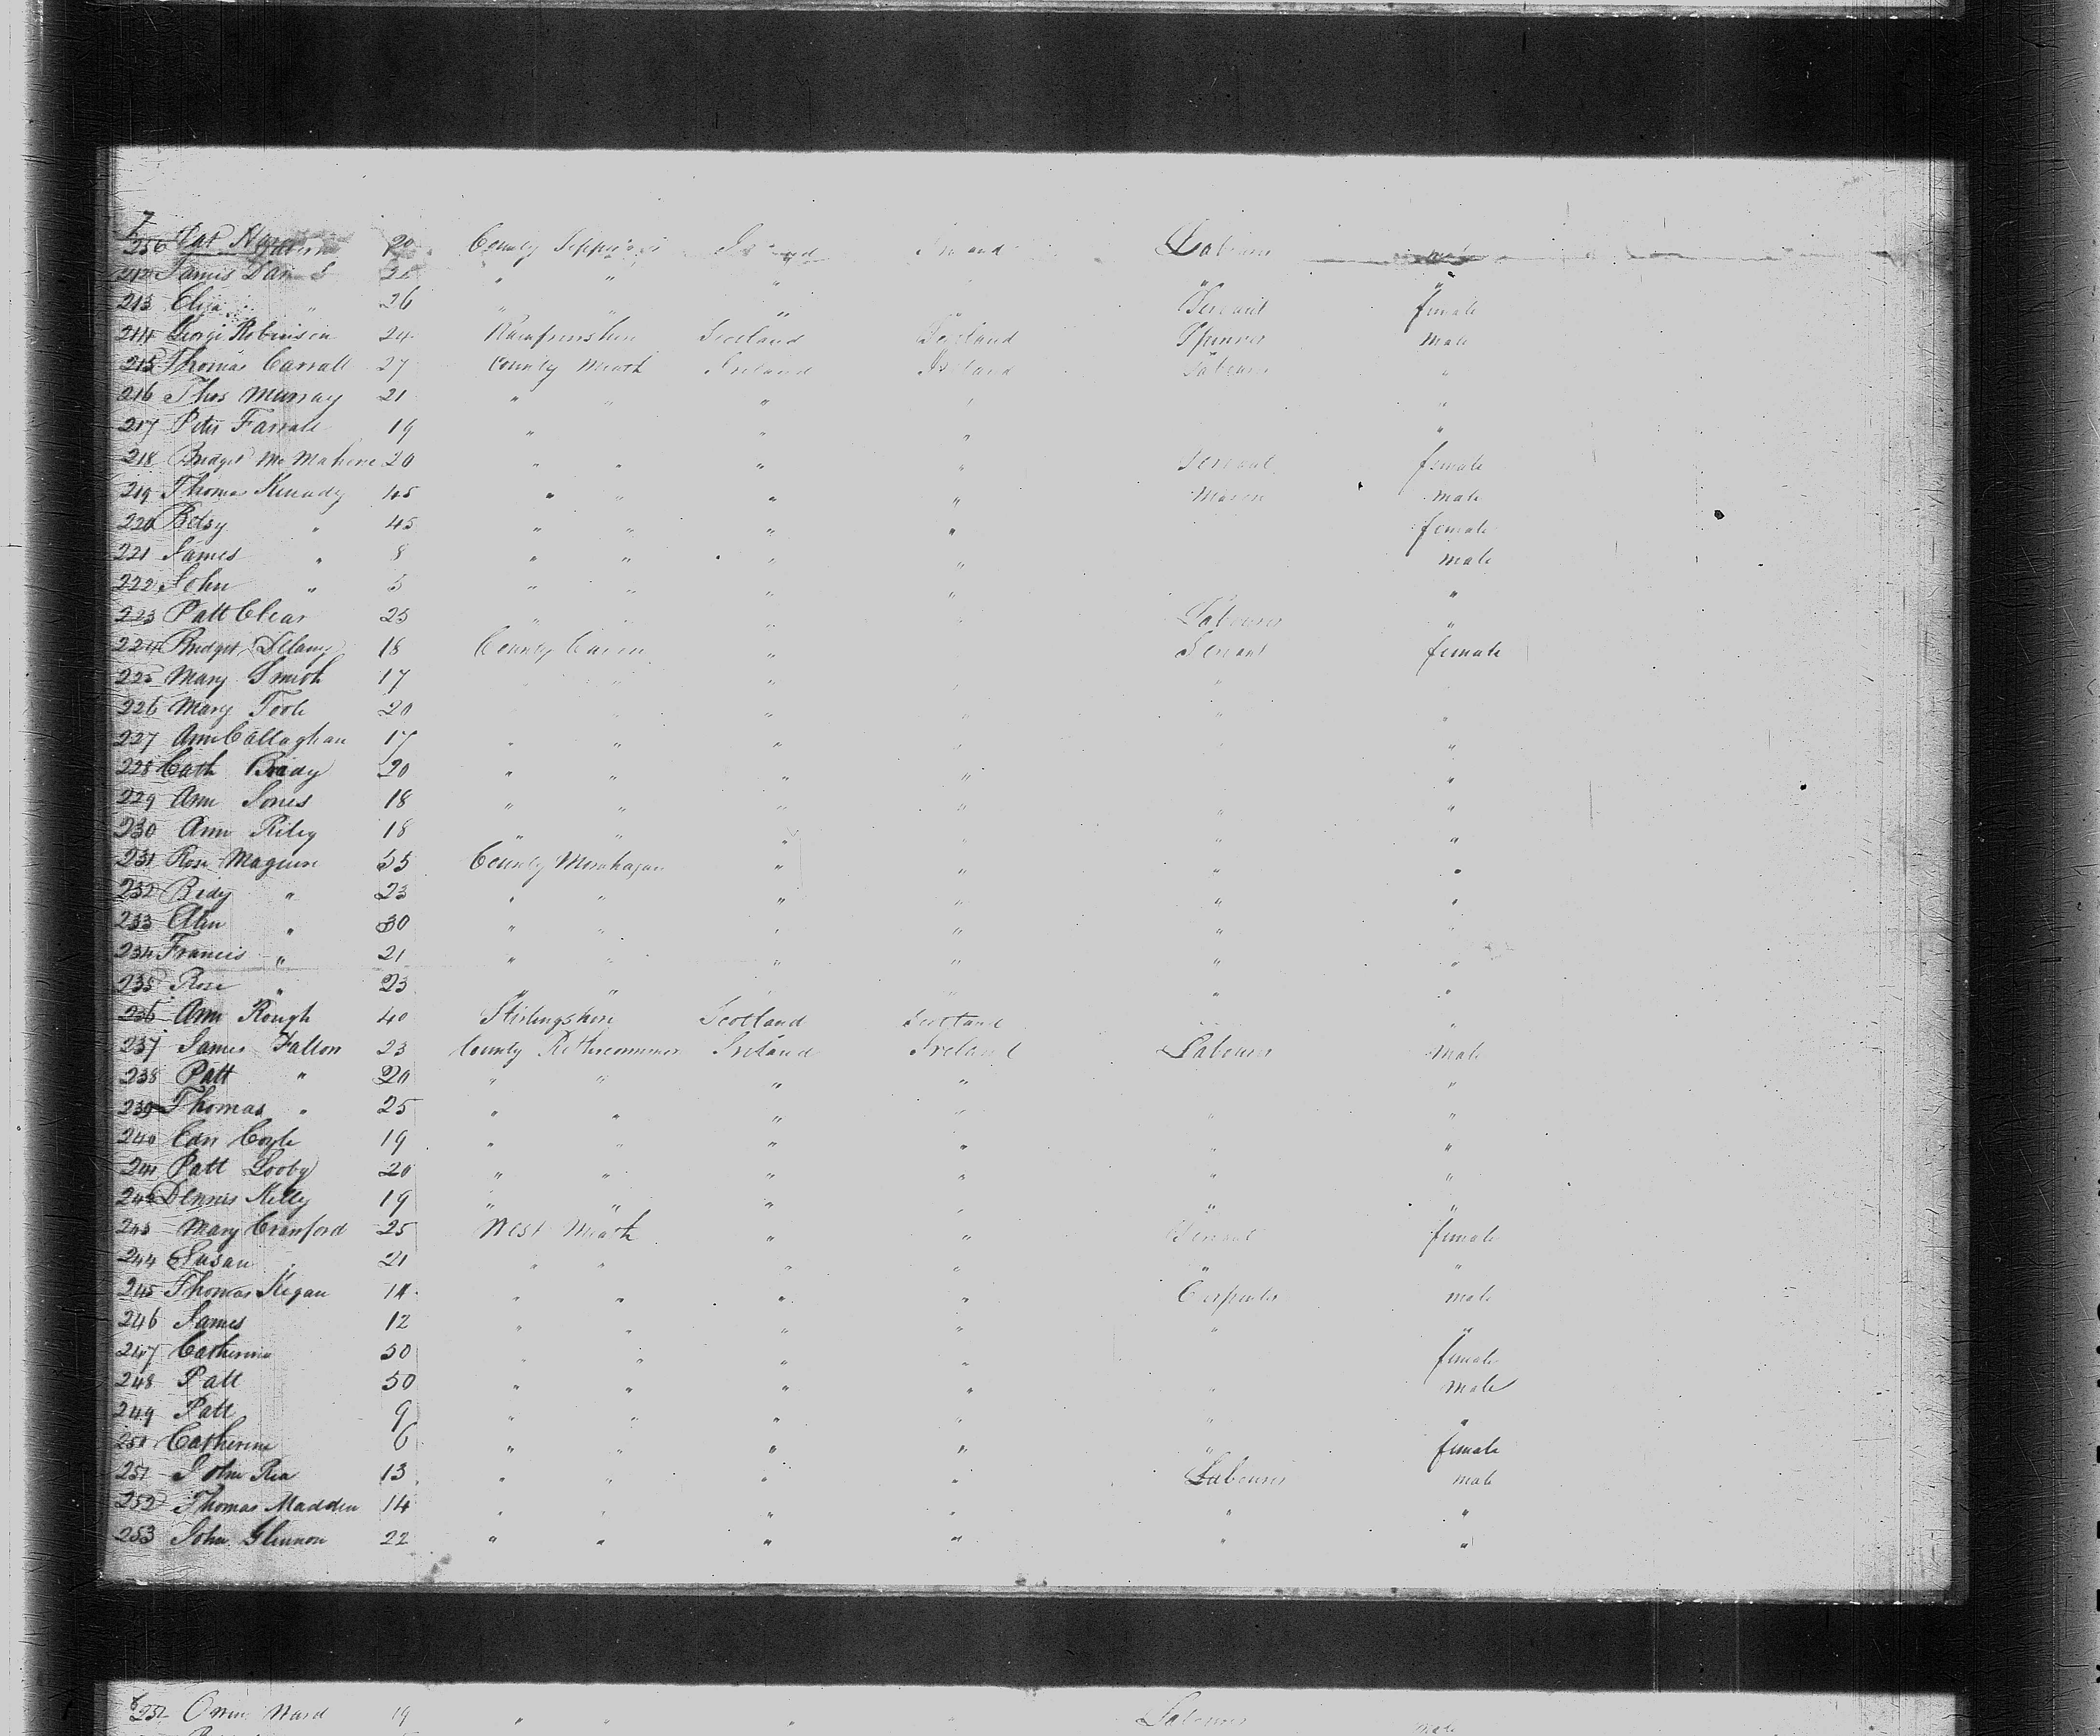 7
256 Pat 20 County Ireland Labourer
212 James Dan 21 " " " "
213 Eliza " 26 " " Servant female
214 George Robinson 24 Scotland Scotland Spinner male
215 Thomas Carrall 27 County Meath Ireland Ireland Labourer "
216 Thos Murray 21 " " " " "
217 Peter Farrale 19 " " " "
218 Bridget Mc Mahone 20 " " " " Servant female
219 Thomas Kenady 45 " " " " Mason male
220 Betsy " 45 " " " " female
221 James " 8 " " " " male
222 John " 5 " " " " "
223 Patt Clear 25 " " " " Labourer "
224 Bridget Dellany 18 County Caven " Servant female
225 Mary Smith 17 " " "
226 Mary Toole 20 " " " " "
227 Ann Callaghan 17 " " " " "
228 Cath Brady 20 " " " " "
229 Ann Jones 18 " " " " " "
230 Ann Riley 18 " " " " " "
231 Rose Maguire 55 County Monahagan " " " "
232 Bidy " 23 " " " " " "
233 Ann " 30 " " " " " "
234 Francis " 21 " " " " " "
235 Rose " 23 " " " " " "
236 Ann Rough 40 Stirlingshire Scotland Scotland "
237 James Fallon 23 County Ireland Ireland Labourer Male
238 Patt " 20 " " " " "
239 Thomas " 25 " " " " " "
240 Edn Coyle 19 " " " " " "
241 Patt Looby 20 " " " " " "
242 Dennis Kelly 19 " " " " " "
243 Mary Cranford 25 West Meath " " Servant female
244 Susan " 21 " " " " " "
245 Thomas Kegan 14 " " " " Carpenter male
246 James 12 " " " " " "
247 Catherine 50 " " " " female
248 Patt 50 " " " " " male
249 Patt 9 " " " " " "
250 Catherine 6 " " " " " female
251 John Rea 13 " " " " Labourer male
252 Thomas Madden 14 " " " " " "
253 John Glennon 22 " " " " " "
8
Ward 19 " " " " Labourer male